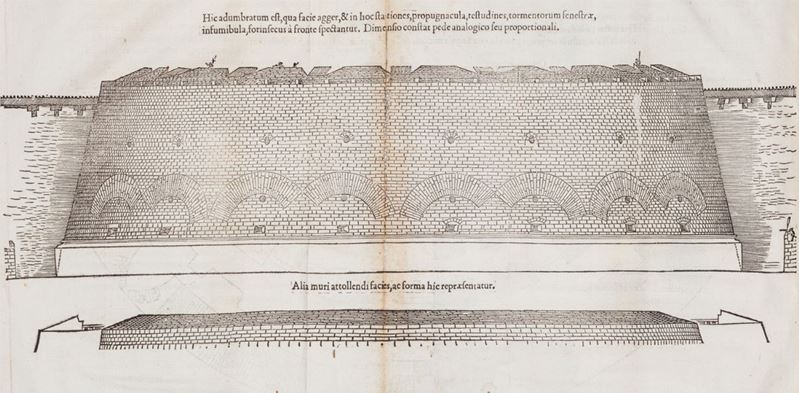 Hic adumbratum est, qua facie agger, & in hoc stationes, p̄ropugnacula, testudines, tormentorum fenestræ,
infumibula, forinsecus à fronte spectantur. Dimensio constat pede analogico seu proportionali.
Alia muri attollendi facies, ac forma hic repræsentatur.